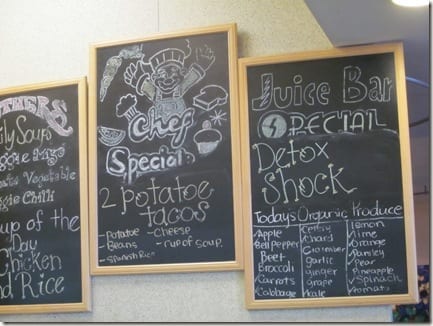 THERS
ily Soups
ggie Miso
Vegetable
ggie Chili
up of the
Day
Chicken
nd Rice
Chef
Special
2 potatoe
tacos
- Potatoe
- Beans
- Spanish Rice
- Cheese
- cup of soup
Juice Bar
SPECIAL
Detox
Shock
Today's Organic Produce
Apple
Bell Pepper
Beet
Broccoli
Carrots
Cabbage
Celery
Chard
Cucumber
Garlic
ginger
Grape
Kale
lemon
lime
Orange
Parsley
Pear
Pineapple
Spinach
Tomato